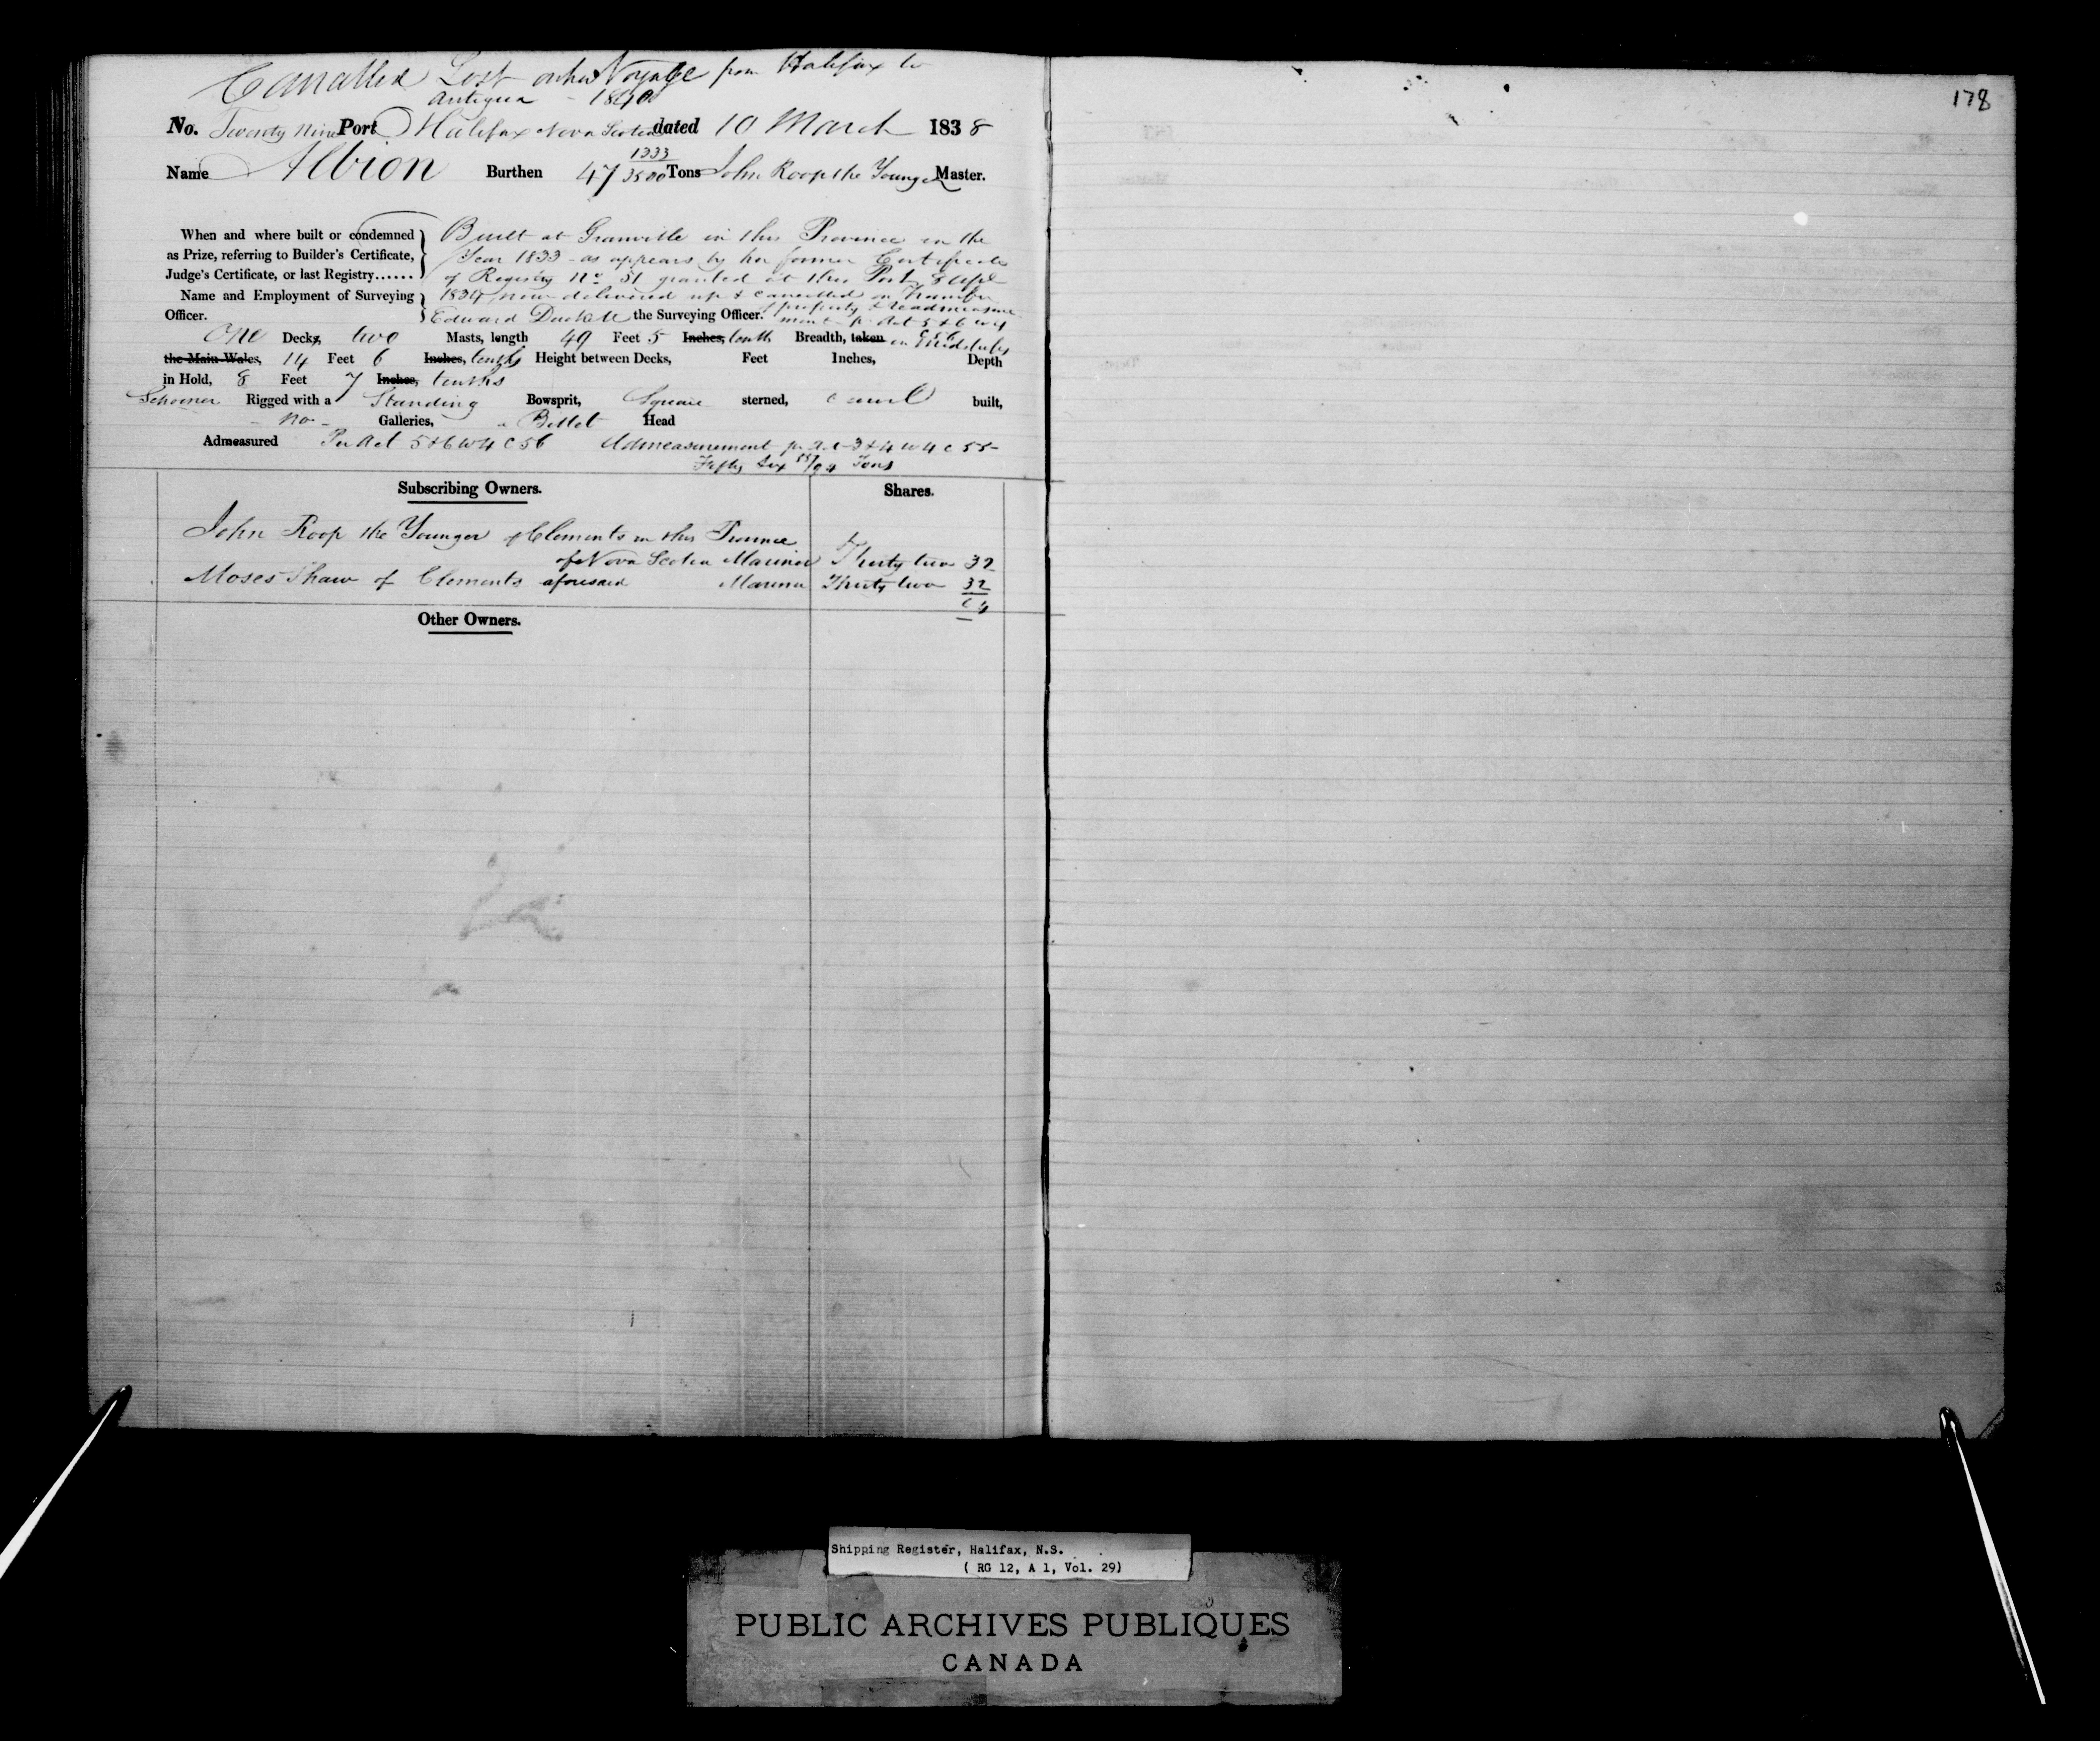 Cancelled Lost on her Voyage from Halifax to
Antigua - 1840
178
No. Twenty Nine Port Halifax Nova Scotia dated 10 March 1838
Name Albion Burthen 47 1333/3500 Tons John Roop the Younger Master.
When and where built or condemned as Prize, referring to Builder's Certificate, Judge's Certificate, or last Registry......
Built at Granville in this Province in the
Year 1833 - as appears by her former Certificate
of Registry No 51 granted at this Port 8 Apl
1834 now delivered up & cancelled on Transfer
Name and Employment of Surveying Officer.
of property & readmeasure
Edward Duckett the Surveying Officer. ment pr Act 5 & 6 W 4
C 56
One Decks, two Masts, length 49 Feet 5 Inches, tenth Breadth, taken in Midships
the Main-Wales, 14 Feet 6 Inches, tenths Height between Decks, Feet Inches, Depth
in Hold, 8 Feet 7 Inches, tenths
Schooner Rigged with a Standing Bowsprit, Square sterned, Carvel built,
- no - Galleries, a Billet Head
Admeasured Per Act 5 & 6 W 4 C 56 Admeasurement pr Act 3 & 4 W 4 C 55 -
Fifty Six /94 Tons
Subscribing Owners. Shares.
John Roop the Younger of Clements in this Province
of Nova Scotia Mariner Thirty two 32
Moses Shaw of Clements aforesaid Mariner Thirty two 32
64
Other Owners.
Shipping Register, Halifax, N.S.
( RG 12, A 1, Vol. 29)
PUBLIC ARCHIVES PUBLIQUES
CANADA